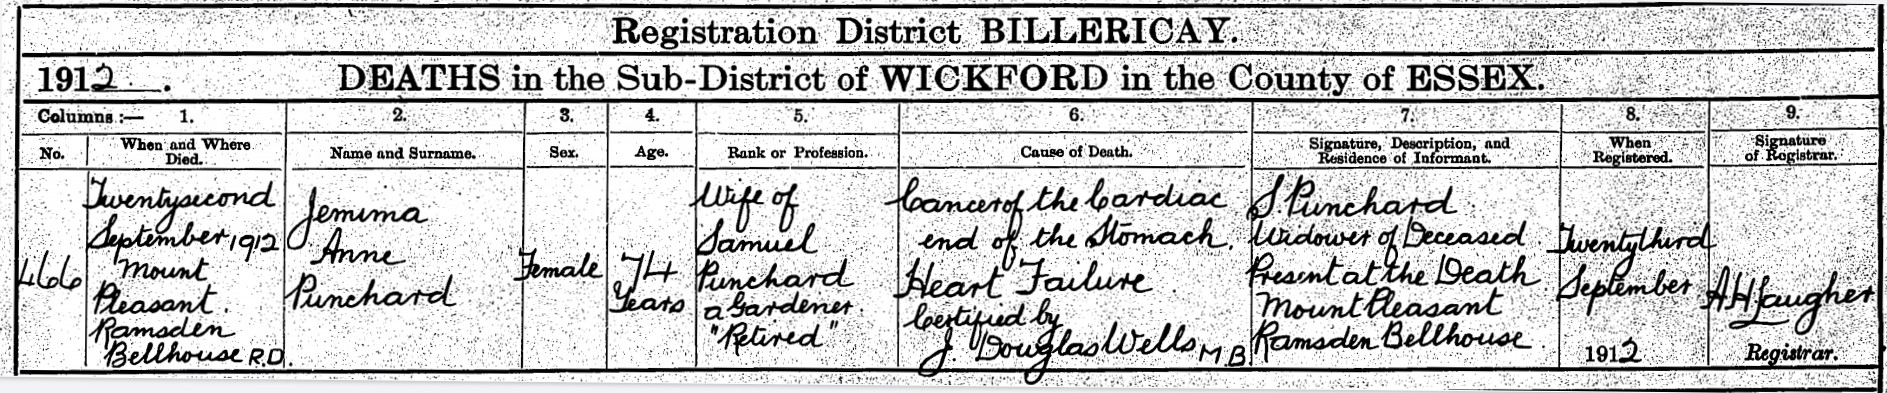 Registration District BILLERICAY.
1912. DEATHS in the Sub-District of WICKFORD in the County of ESSEX.
Columns :— 1. 2. 3. 4. 5. 6. 7. 8. 9.
No.
When and Where
Died.
Name and Surname.
Sex.
Age.
Rank or Profession.
Cause of Death.
Signature, Description, and
Residence of Informant.
When
Registered.
Signature
of Registrar.
466
Twentysecond
September 1912
Mount
Pleasant.
Ramsden
Bellhouse R.D.
Jemima
Anne
Punchard
Female
74
Years
Wife of
Samuel
Punchard
a Gardener.
"Retired"
Cancer of the Cardiac
end of the Stomach.
Heart Failure
Certified by
J. Douglas Wells M.B.
S. Punchard
Widower of Deceased
Present at the Death
Mount Pleasant
Ramsden Bellhouse
Twentythird
September
1912
A H Laugher
Registrar.